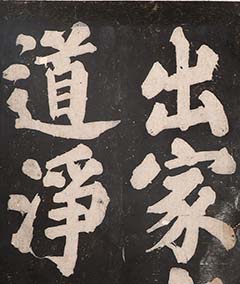 出家
道淨